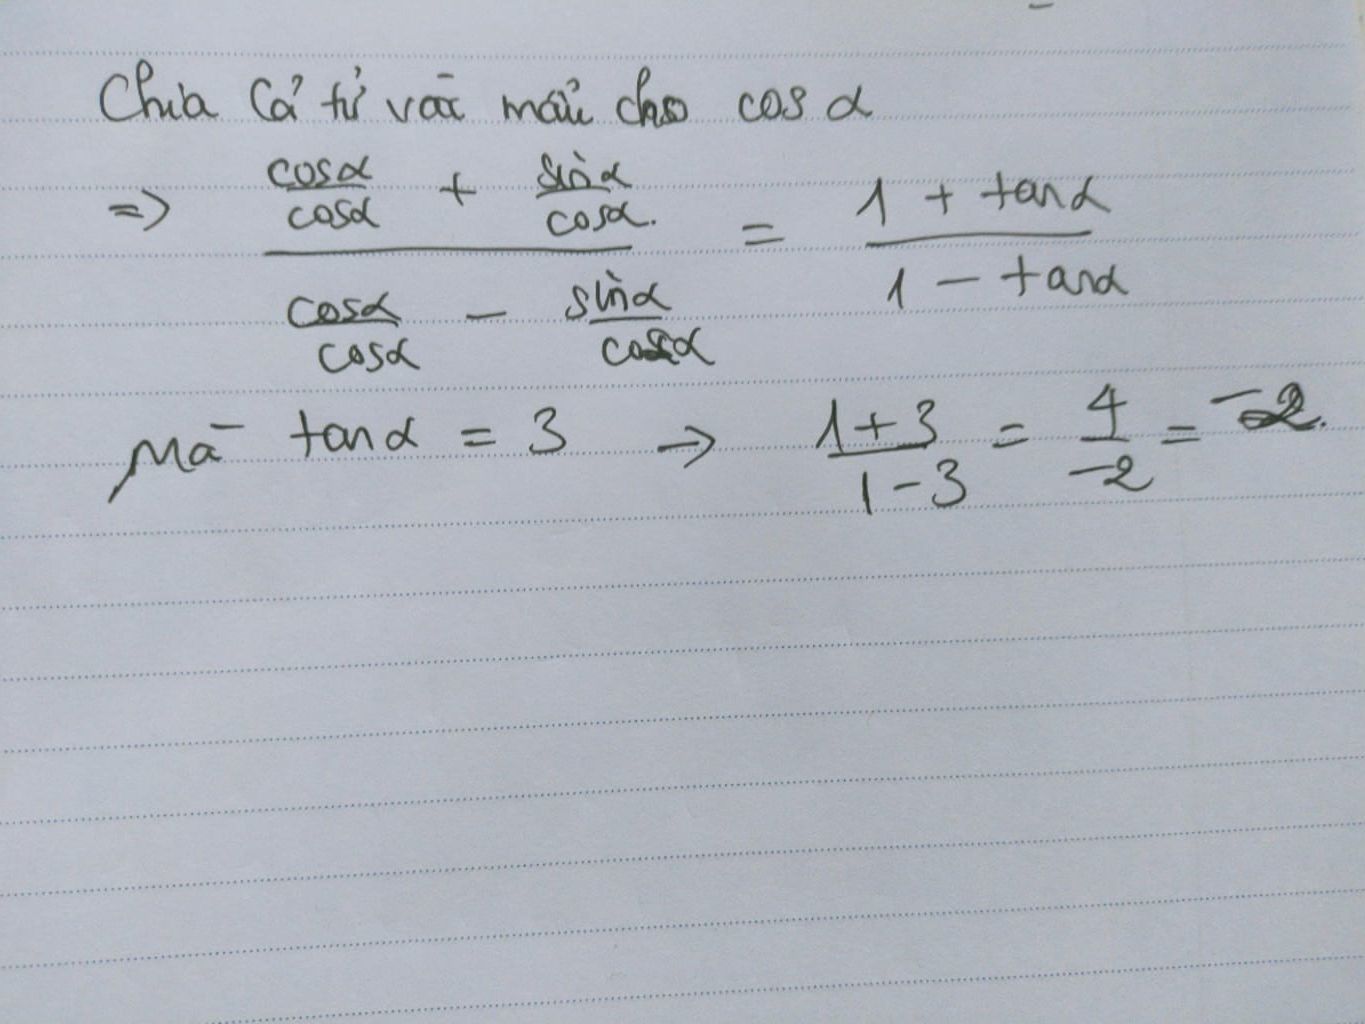 Chia cả tử và mẫu cho cos α
=> (cosα/cosα + sinα/cosα.) / (cosα/cosα - sinα/cosα) = (1 + tanα) / (1 - tanα)
Mà tanα = 3 → (1+3)/(1-3) = 4/-2 = -2.